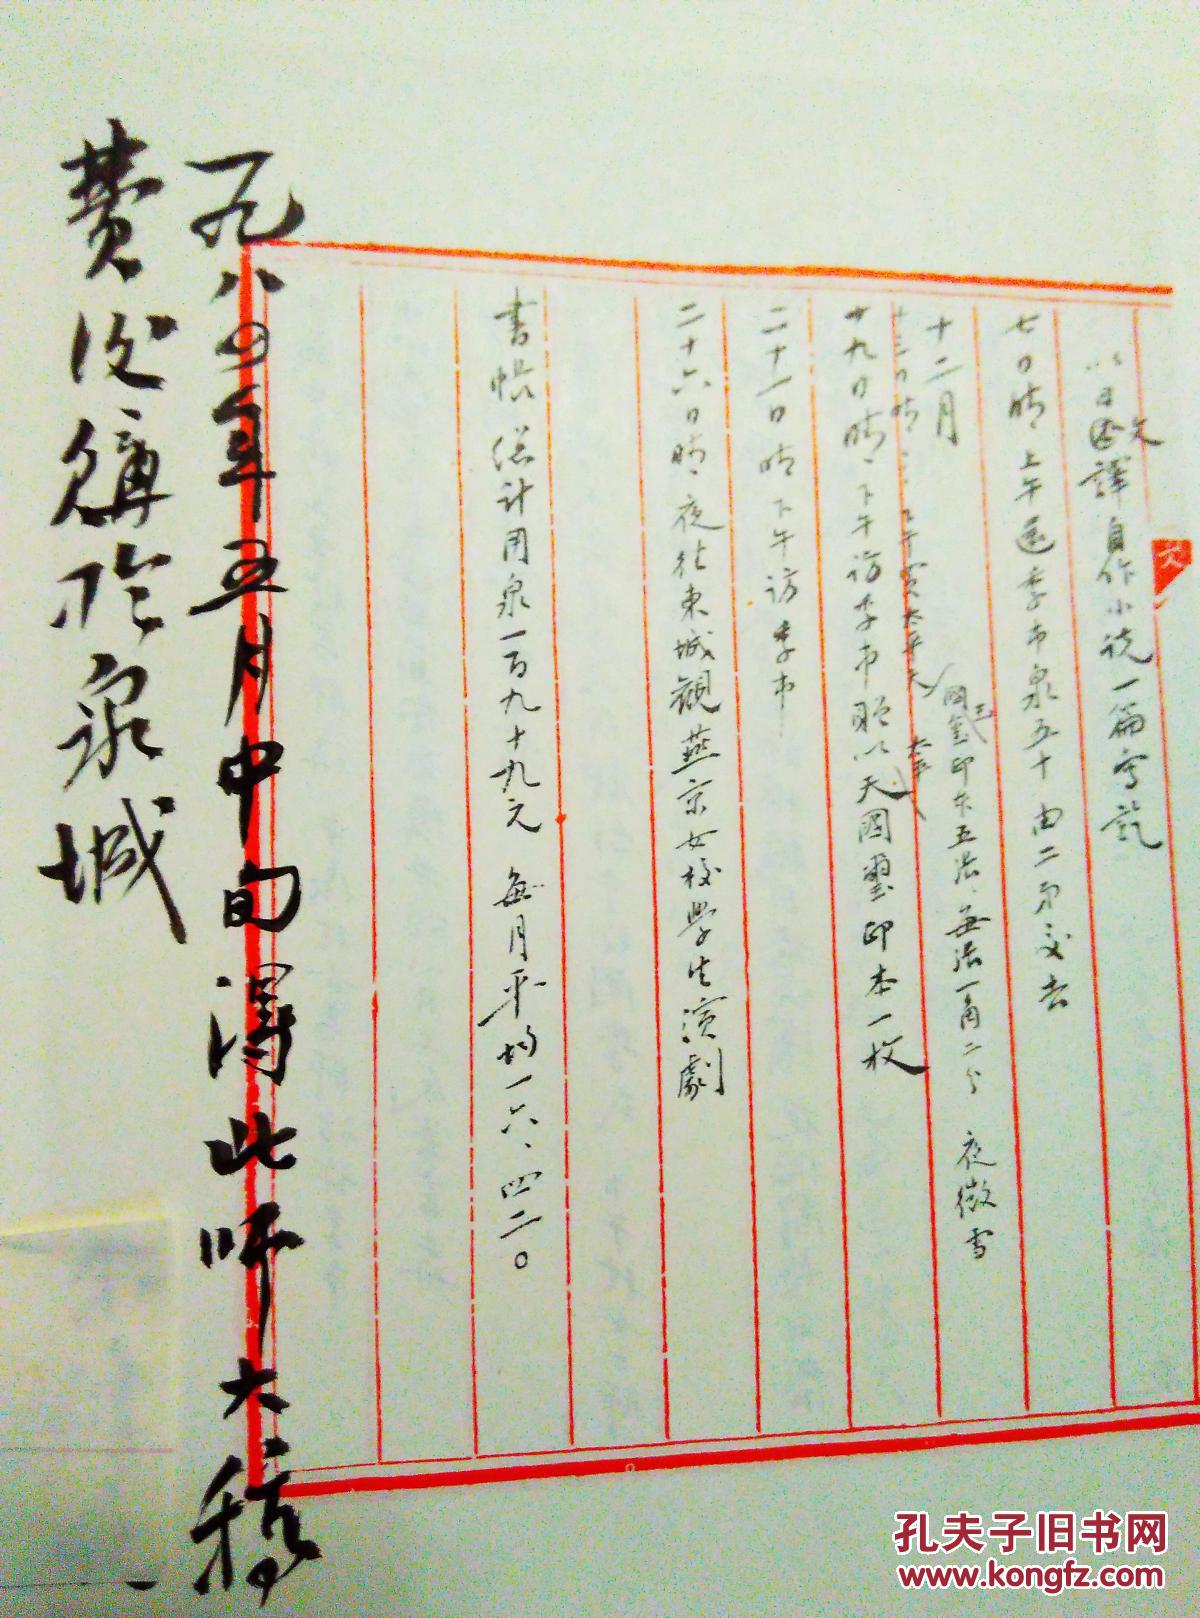 以日文譯自作小说一篇寫訖
七日晴上午還季市泉五十由二弟交去
十二月
十三日晴下午買太平天國玉璽印本五张、每张一角二分 夜微雪
十九日晴、下午访季市贈以太平天國璽印本一枚
二十一日晴下午访季市
二十六日晴、夜往東城觀燕京女校學生演劇
書帐 總计用泉一百九十九元 每月平均一六、四二〇
一九八四年五月中旬得此师大稿
费後購於泉城
孔夫子旧书网
www.kongfz.com